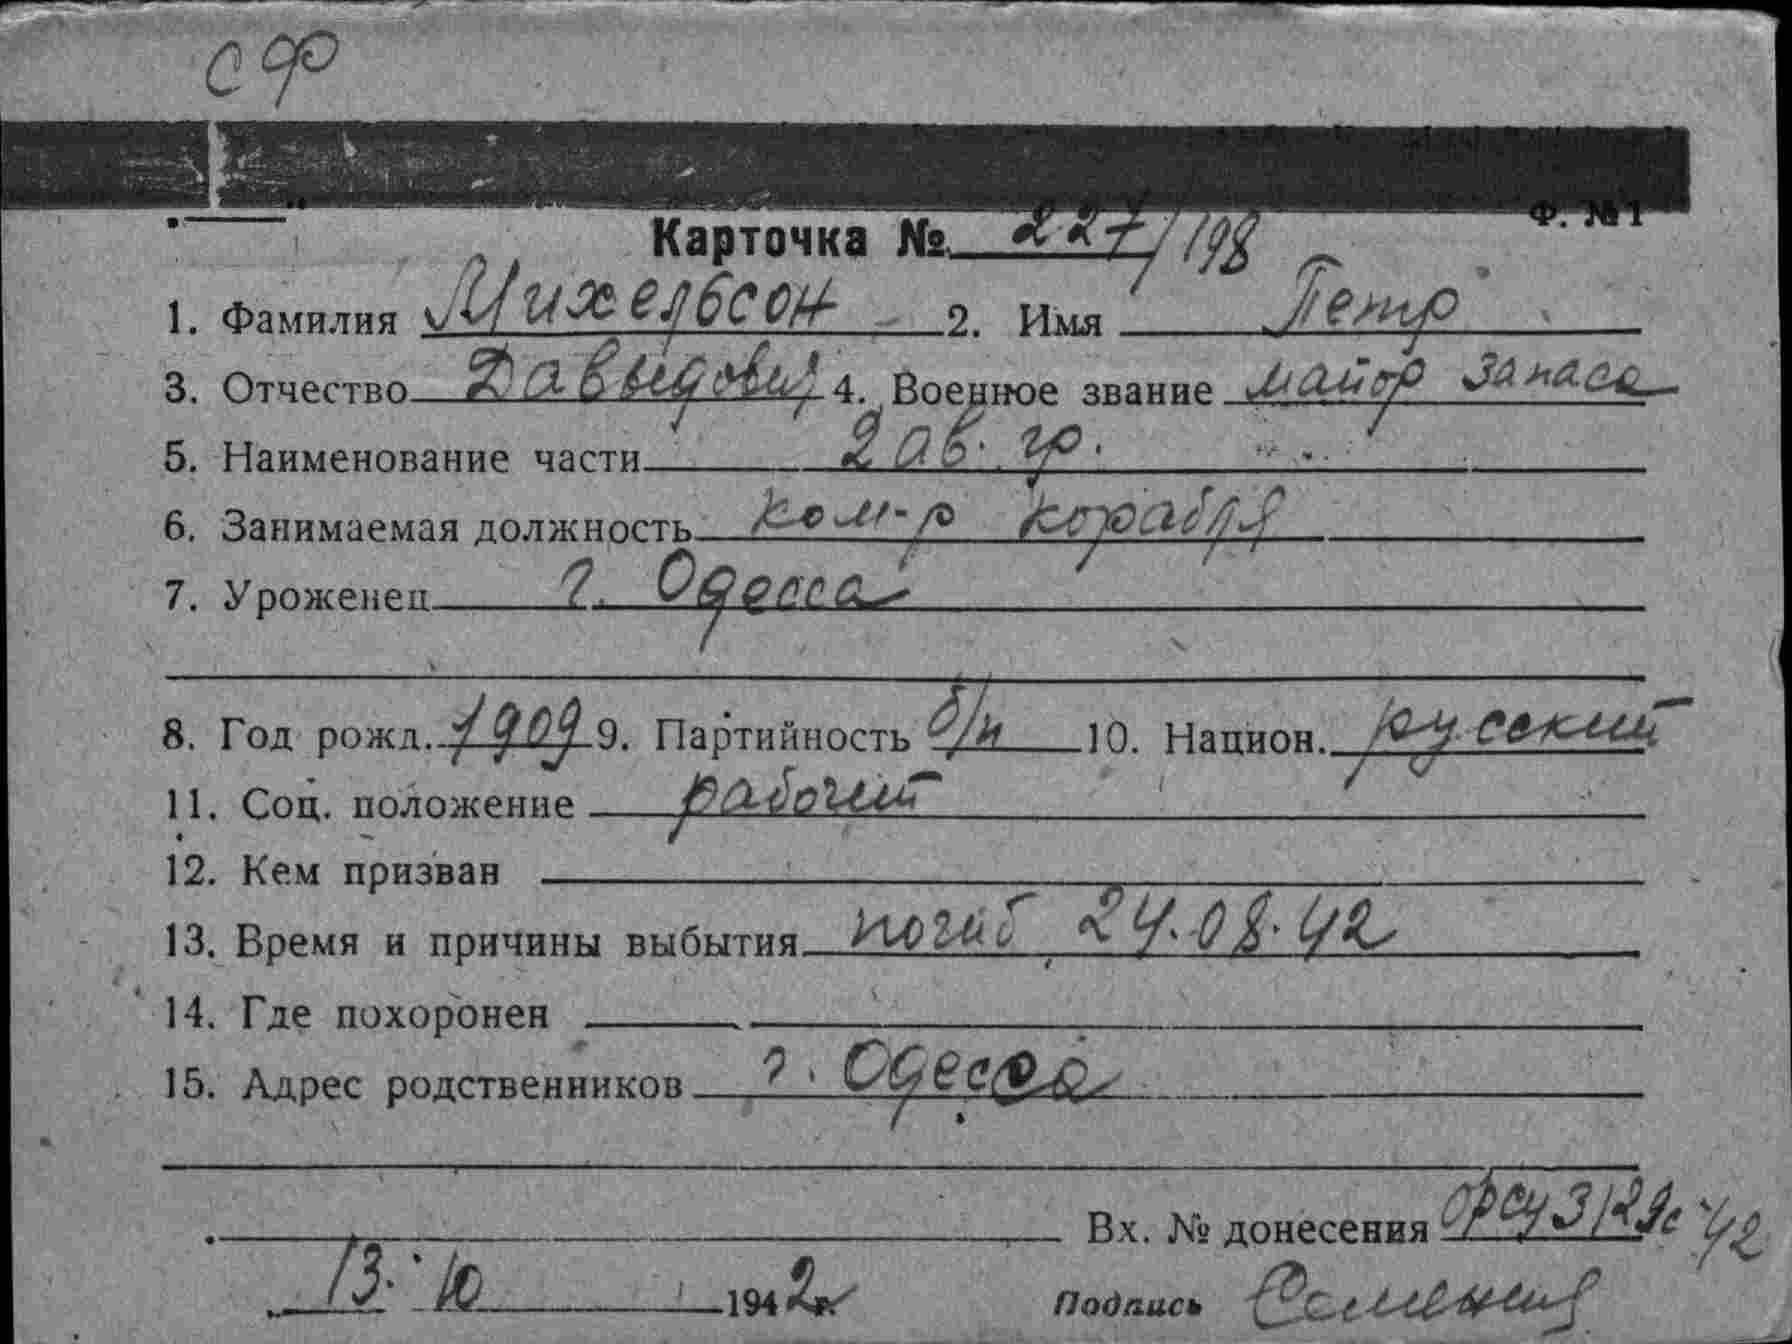 СФ
Ф. №1
Карточка № 227/198
1. Фамилия Михельсон 2. Имя Петр
3. Отчество Давыдович 4. Военное звание майор запаса
5. Наименование части 2 ав. гр.
6. Занимаемая должность ком-р корабля
7. Уроженец г. Одесса
8. Год рожд. 1909 9. Партийность б/п 10. Национ. русский
11. Соц. положение рабочий
12. Кем призван
13. Время и причины выбытия погиб 24.08.42
14. Где похоронен
15. Адрес родственников г. Одесса
Вх. № донесения
13. 10 1942 г.
Подпись